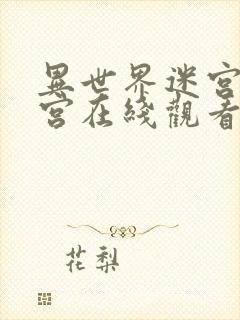 異世界迷宮
宮在綫觀看
花梨